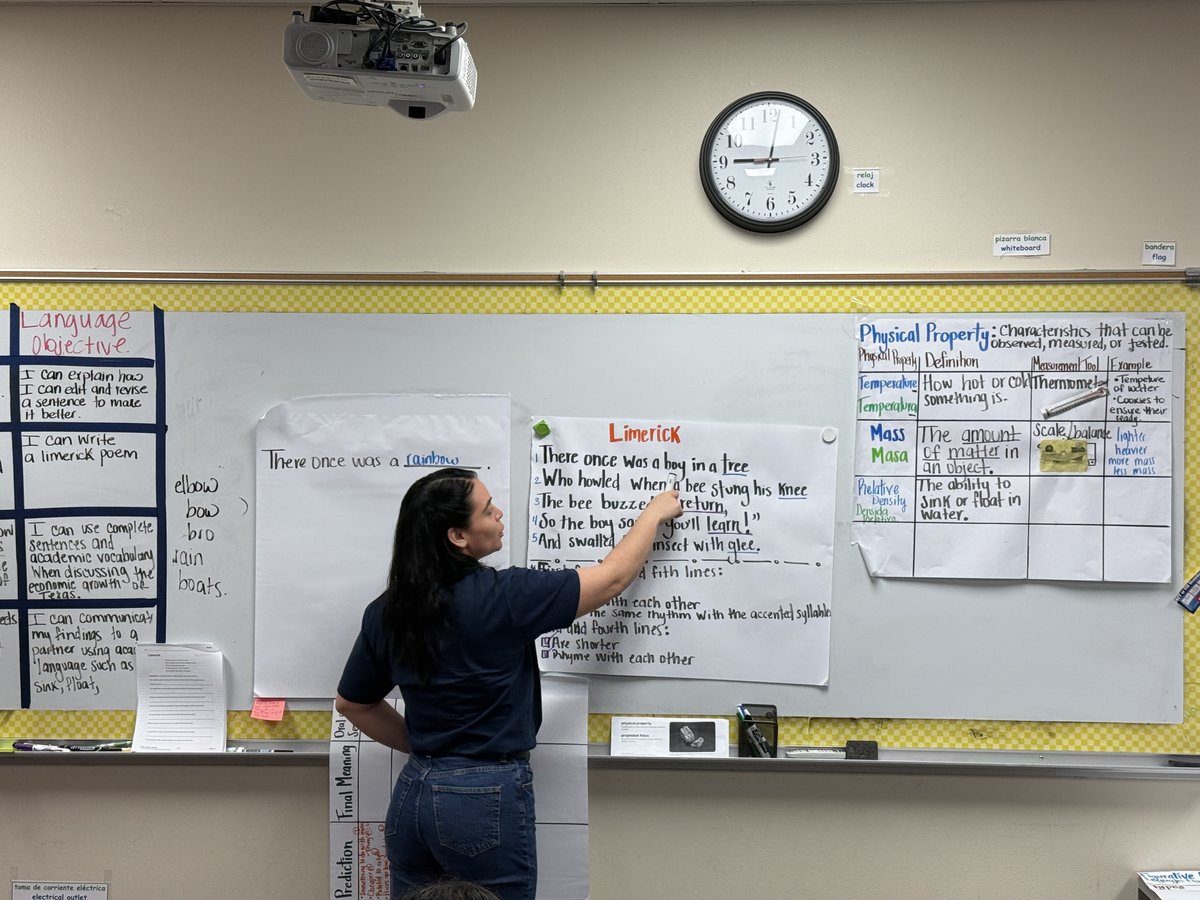 12
1
2
3
4
5
6
7
8
9
10
11
reloj
clock
pizarra blanca
whiteboard
bandera
flag
Language
Objective
I can explain how
I can edit and revise
a sentence to make
it better.
I can write
a limerick poem
I can use complete
sentences and
academic vocabulary
when discussing the
economic growth of
Texas.
I can communicat
my findings to a
partner using aca
language such as
sink, float,
elbow
bow
bro
rain
boats.
There once was a rainbow.
Limerick
1 There once was a boy in a tree
2. Who howled when a bee stung his knee
3 The bee buzzed return,
4 So the boy sa you'll learn!"
5 And swalled insect with glee.
fith lines:
with each other
the same rhythm with the accented syllable
and fourth lines:
Are shorter
Rhyme with each other
Physical Property: Characteristics that can be
observed, measured, or tested.
Physical Property Definition Measurement Tool Example
Temperature
Temperatura
How hot or cold
something is.
Thermometer
• Tempeture
of water
• Cookies to
ensure their
ready.
Mass
Masa
The amount
of matter in
an object.
Scale/balance
lighter
heavier
more mass
less mass
Relative
Density
Densida
Relativa
The ability to
sink or float in
water.
physical property
propiedad física
Final Meaning
Prediction
toma de corriente eléctrica
electrical outlet